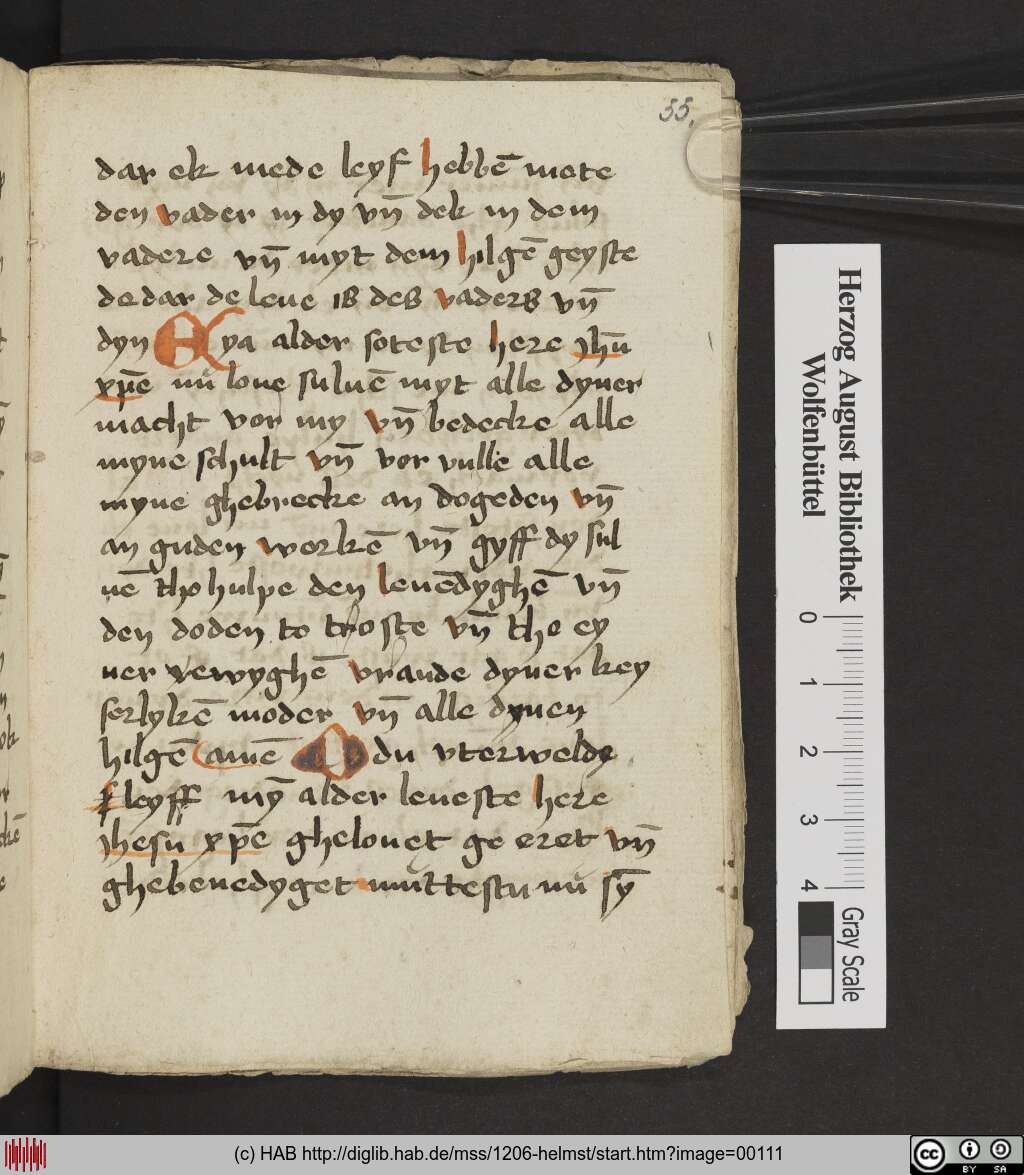 55.
dar ek mede leyf hebbē mote
den vader in dy vn̄ dek in dem
vadere vn̄ myt dem hilgē geyste
de dar de leue is des vaders vn̄
dyn Eya alder soteste here ihū
xp̄e nu loue suluē myt alle dyner
macht vor my vn̄ bedecke alle
myne schult vn̄ vor vulle alle
myne ghebrecke an dogeden vn̄
an guden werkē vn̄ gyff dy sul
uē tho hulpe den leuēdyghē vn̄
den doden to troste vn̄ tho ey
ner ewyghē vraude dyner key
serlykē moder vn̄ alle dynen
hilgē amē O du vterwelde
leyff mȳ alder leueste here
ihesu xp̄e ghelouet ge eret vn̄
ghebenedyget mūttestu nu sȳ
Herzog August Bibliothek
Wolfenbüttel
0 1 2 3 4
Gray Scale
(c) HAB http://diglib.hab.de/mss/1206-helmst/start.htm?image=00111
cc BY SA